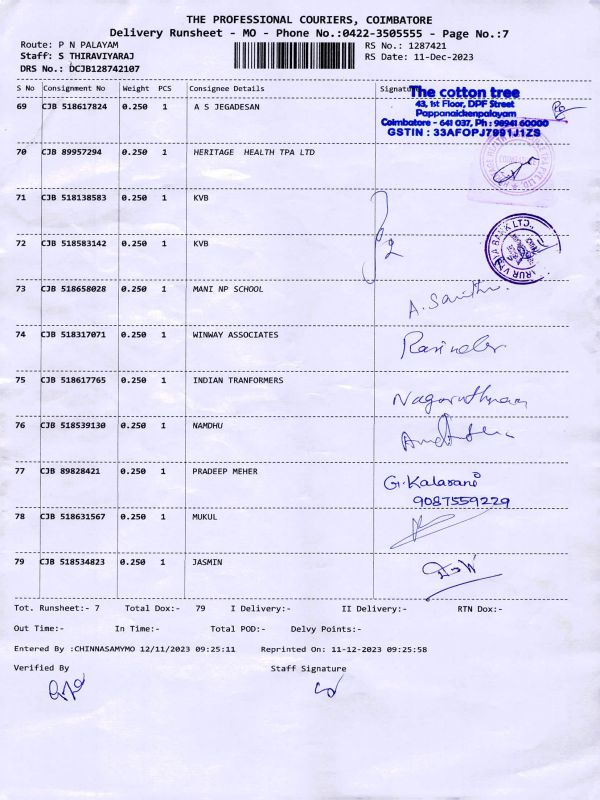 THE PROFESSIONAL COURIERS, COIMBATORE
Delivery Runsheet - MO - Phone No.:0422-3505555 - Page No.:7
Route: P N PALAYAM
RS No.: 1287421
Staff: S THIRAVIYARAJ
RS Date: 11-Dec-2023
DRS No.: DCJB128742107
S No Consignment No Weight PCS Consignee Details Signature
69 CJB 518617824 0.250 1 A S JEGADESAN
The cotton tree
43, 1st Floor, DPF Street
Pappanaickenpalayam
Coimbatore - 641 037, Ph : 98941 60000
GSTIN : 33AFOPJ7991J1ZS
70 CJB 89957294 0.250 1 HERITAGE HEALTH TPA LTD
71 CJB 518138583 0.250 1 KVB
72 CJB 518583142 0.250 1 KVB
73 CJB 518658028 0.250 1 MANI NP SCHOOL
74 CJB 518317071 0.250 1 WINWAY ASSOCIATES
75 CJB 518617765 0.250 1 INDIAN TRANFORMERS
76 CJB 518539130 0.250 1 NAMDHU
77 CJB 89828421 0.250 1 PRADEEP MEHER
G. Kalarani
9087559229
78 CJB 518631567 0.250 1 MUKUL
79 CJB 518534823 0.250 1 JASMIN
Tot. Runsheet:- 7 Total Dox:- 79 I Delivery:- II Delivery:- RTN Dox:-
Out Time:- In Time:- Total POD:- Delvy Points:-
Entered By :CHINNASAMYMO 12/11/2023 09:25:11 Reprinted On: 11-12-2023 09:25:58
Verified By Staff Signature